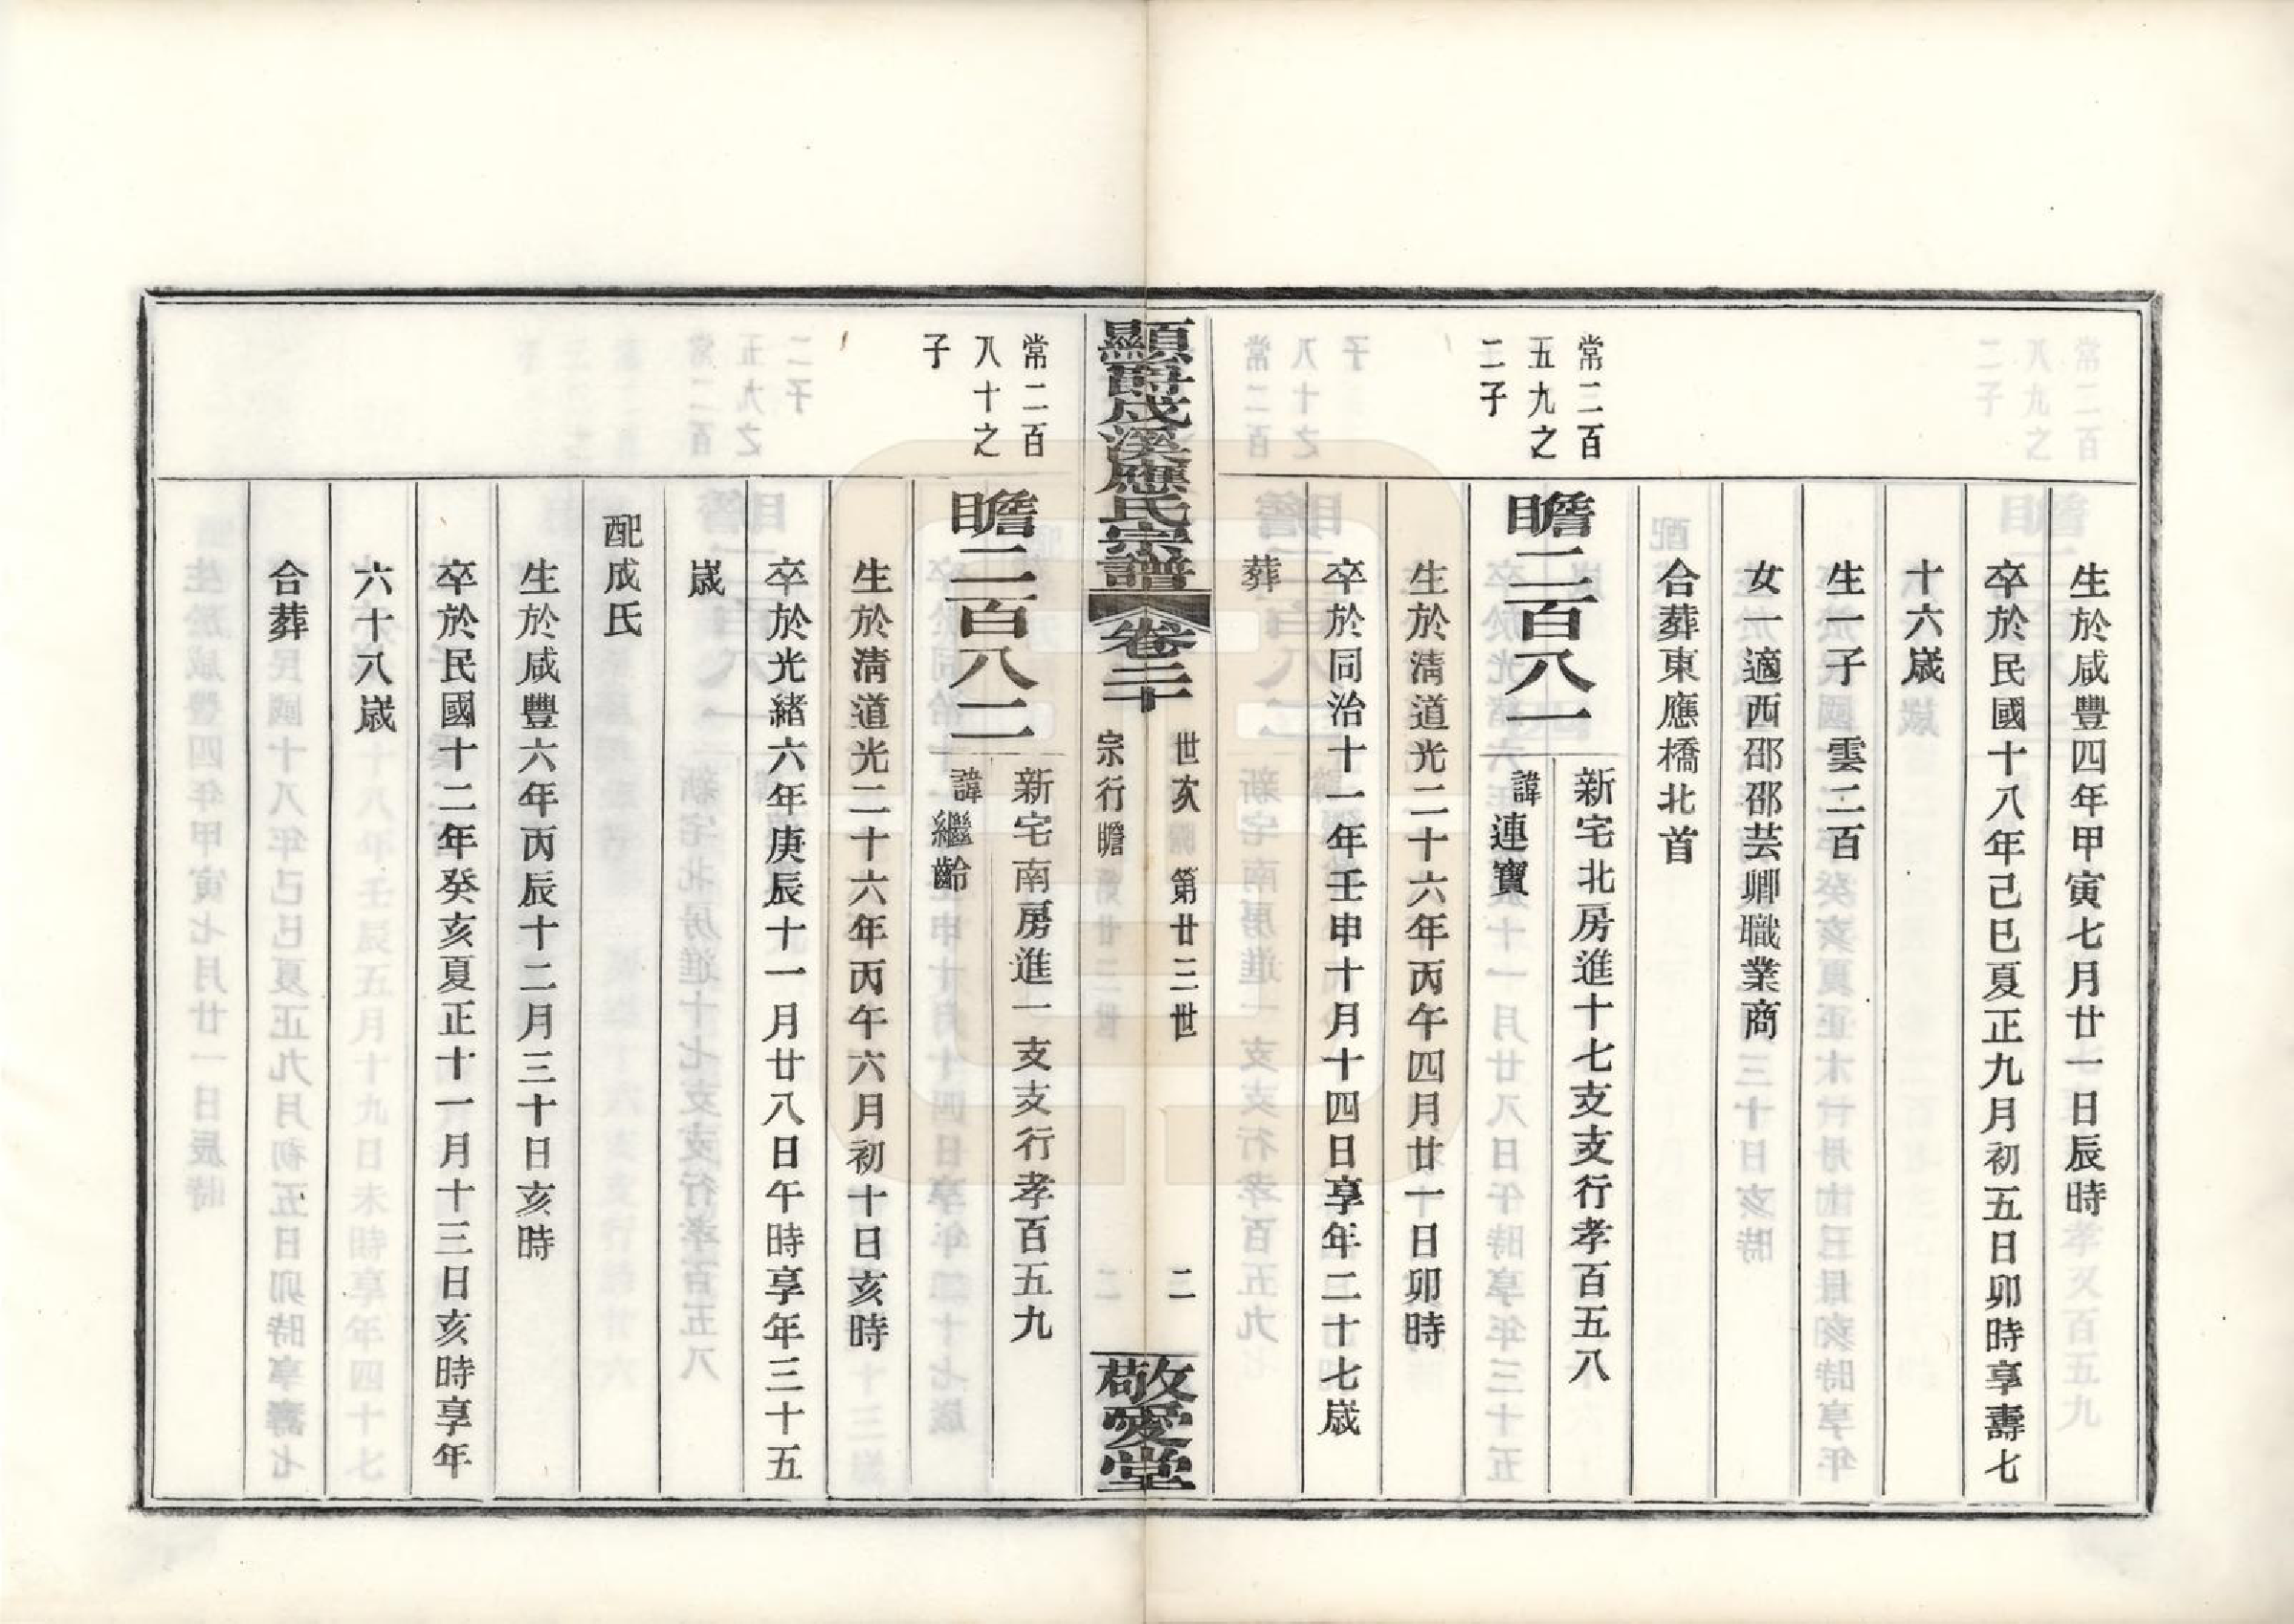 生於咸豐四年甲寅七月廿一日辰時
卒於民國十八年己巳夏正九月初五日卯時享壽七
十六歲
生一子 雲二百
女一適西邵邵芸卿職業商
合葬東應橋北首
常二百
五九之
二子
瞻二百八一
新宅北房進十七支支行孝百五八
諱連寶
生於清道光二十六年丙午四月廿一日卯時
卒於同治十一年壬申十月十四日享年二十七歲
葬
顯爵戍溪應氏宗譜 卷二十
世次 第廿三世 二
宗行瞻
敬愛堂
常二百
八十之
子
瞻二百八二
新宅南房進一支支行孝百五九
諱繼齡
生於清道光二十六年丙午六月初十日亥時
卒於光緒六年庚辰十一月廿八日午時享年三十五
歲
配成氏
生於咸豐六年丙辰十二月三十日亥時
卒於民國十二年癸亥夏正十一月十三日亥時享年
六十八歲
合葬